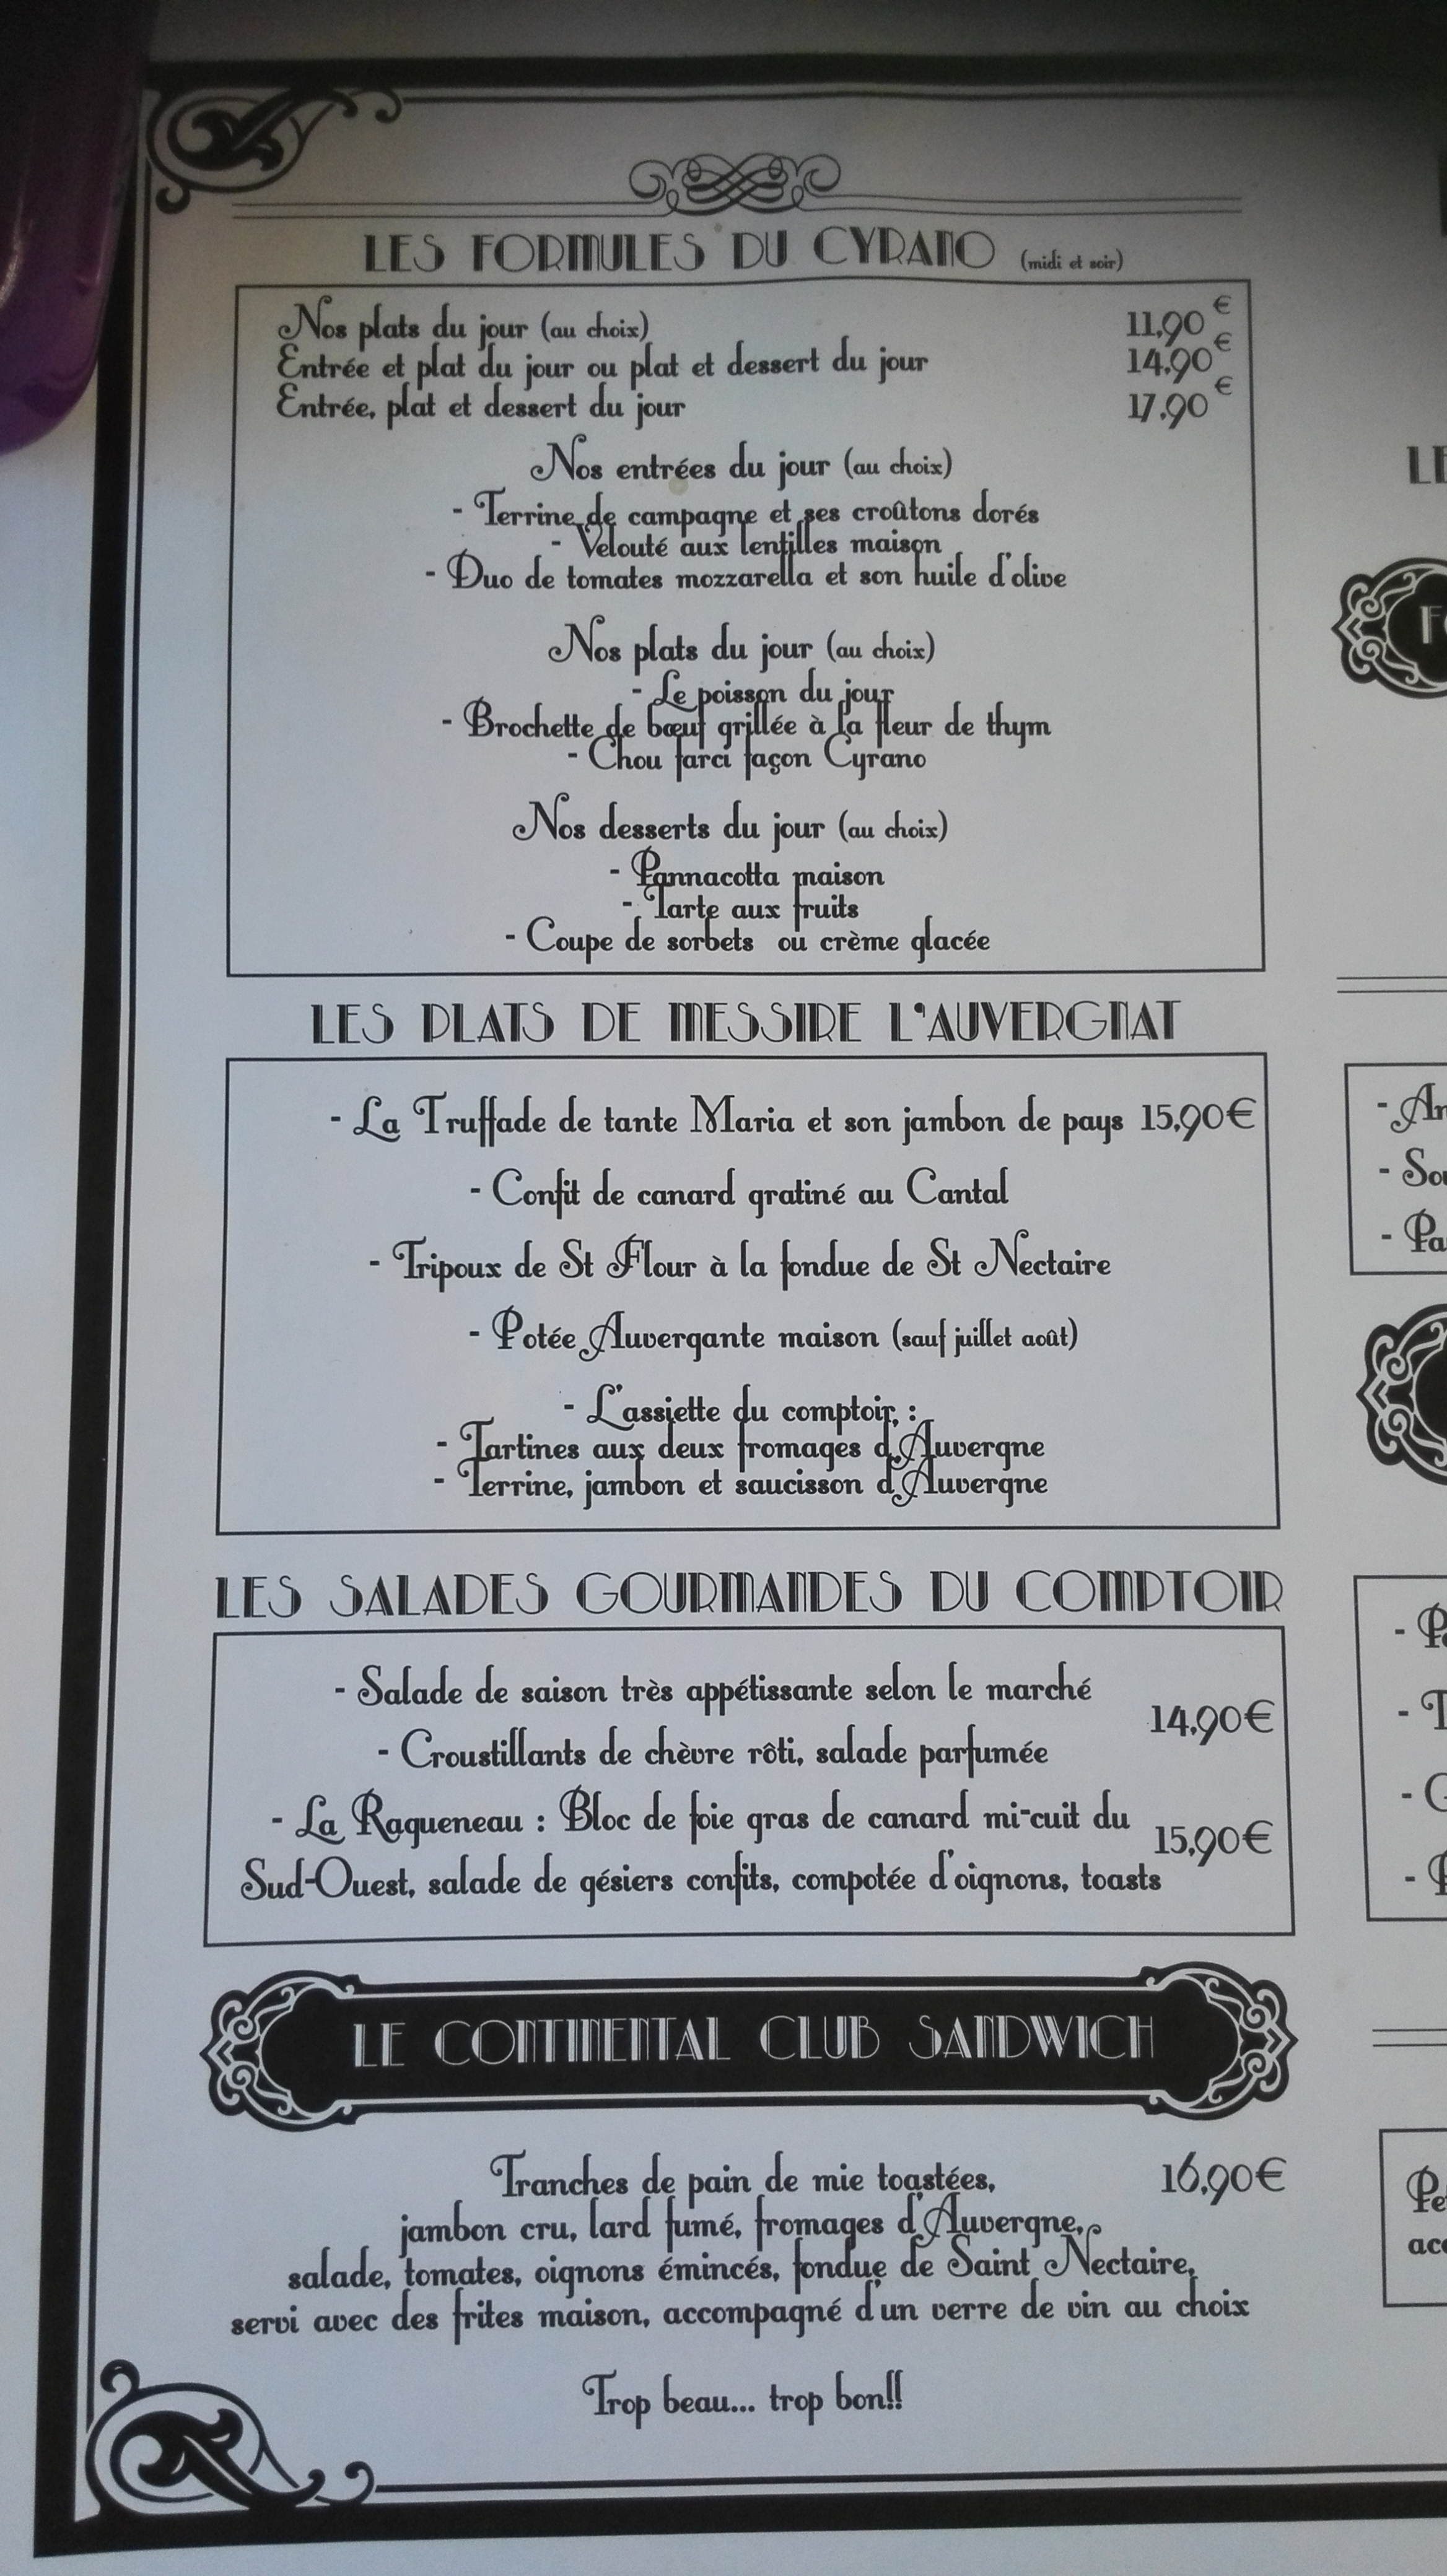 LES FORMULES DU CYRANO (midi et soir)
Nos plats du jour (au choix) 11,90€
Entrée et plat du jour ou plat et dessert du jour 14.90€
Entrée, plat et dessert du jour 17.90€
Nos entrées du jour (au choix)
- Terrine de campagne et ses croûtons dorés
- Velouté aux lentilles maison
- Duo de tomates mozzarella et son huile d'olive
Nos plats du jour (au choix)
- Le poisson du jour
- Brochette de bœuf grillée à la fleur de thym
- Chou farci façon Cyrano
Nos desserts du jour (au choix)
- Pannacotta maison
- Tarte aux fruits
- Coupe de sorbets ou crème glacée
LES PLATS DE MESSIRE L'AUVERGNAT
- La Truffade de tante Maria et son jambon de pays 15,90€
- Confit de canard gratiné au Cantal
- Tripoux de St Flour à la fondue de St Nectaire
- Potée Auvergante maison (sauf juillet août)
- L'assiette du comptoir, :
- Tartines aux deux fromages d'Auvergne
- Terrine, jambon et saucisson d'Auvergne
LES SALADES GOURMANDES DU COMPTOIR
- Salade de saison très appétissante selon le marché
14,90€
- Croustillants de chèvre rôti, salade parfumée
- La Ragueneau : Bloc de foie gras de canard mi-cuit du
15,90€
Sud-Ouest, salade de gésiers confits, compotée d'oignons, toasts
LE CONTINENTAL CLUB SANDWICH
Tranches de pain de mie toastées, 16,90€
jambon cru, lard fumé, fromages d'Auvergne,
salade, tomates, oignons émincés, fondue de Saint Nectaire,
servi avec des frites maison, accompagné d'un verre de vin au choix
Trop beau... trop bon!!